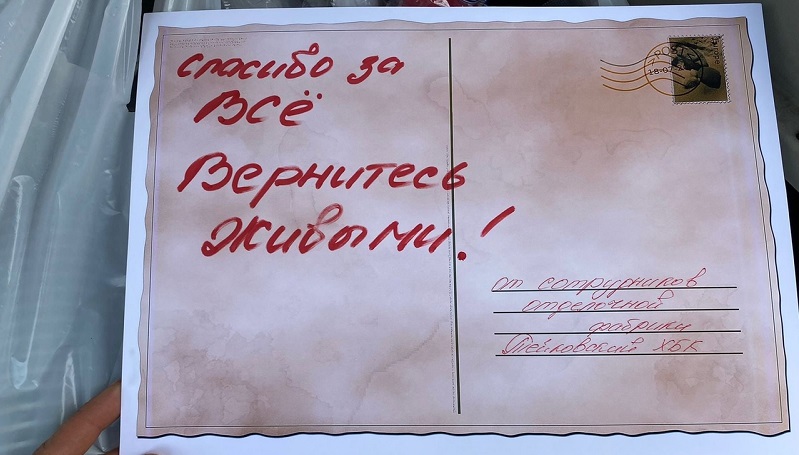 спасибо за
ВСЁ
Вернитесь
живыми!
от сотрудников
отделочной
фабрики
Тейковский ХБК